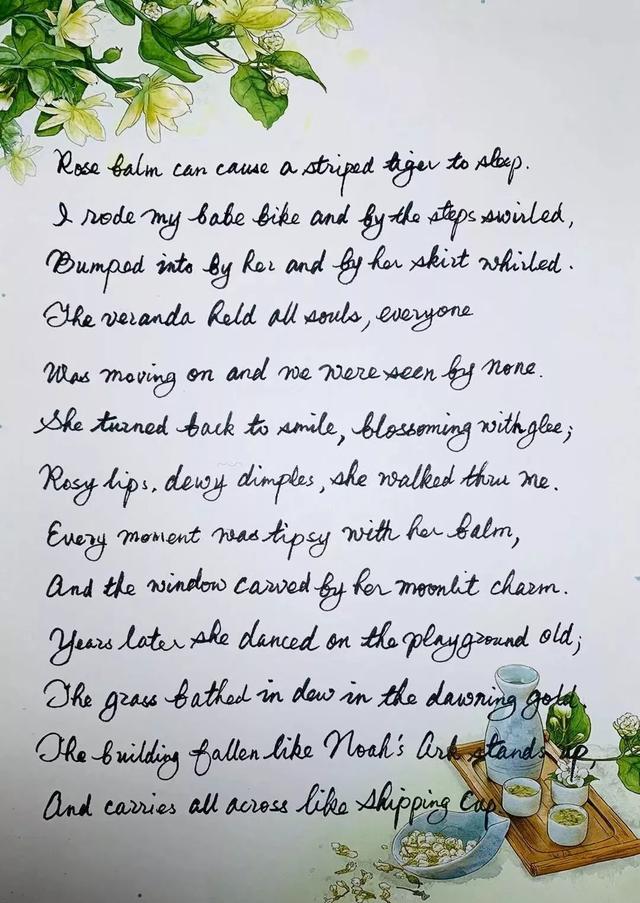 Rose balm can cause a striped tiger to sleep.
I rode my babe bike and by the steps swirled,
Bumped into by her and by her skirt whirled.
The veranda held all souls, everyone
Was moving on and we were seen by none.
She turned back to smile, blossoming with glee;
Rosy lips, dewy dimples, she walked thru me.
Every moment was tipsy with her balm,
And the window carved by her moonlit charm.
Years later she danced on the playground old;
The grass bathed in dew in the dawning gold.
The building fallen like Noah's Ark stands up,
And carries all across like shipping cup.